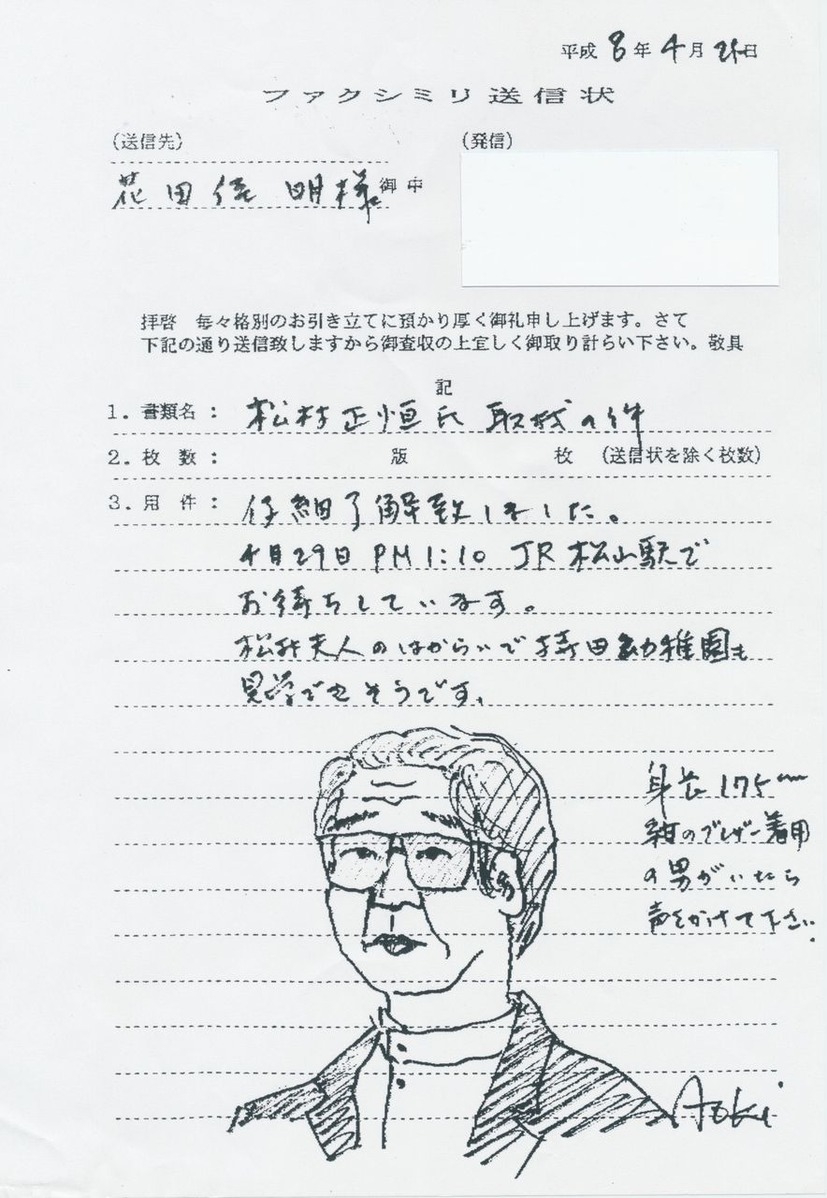 平成 8 年 4 月 25日
ファクシミリ送信状
(送信先)
(発信)
花田佳明様御中
拝啓 毎々格別のお引き立てに預かり厚く御礼申し上げます。さて
下記の通り送信致しますから御査収の上宜しく御取り計らい下さい。敬具
記
1. 書類名 : 松村正恒氏取材の件
2. 枚 数 : 版 枚 (送信状を除く枚数)
3. 用 件 : 仔細了解致しました。
4月29日 PM 1:10 JR松山駅で
お待ちしています。
松村夫人のはからいで持田幼稚園も
見学できそうです。
身長175cm
紺のブレザー着用
の男がいたら
声をかけて下さい.
Aoki